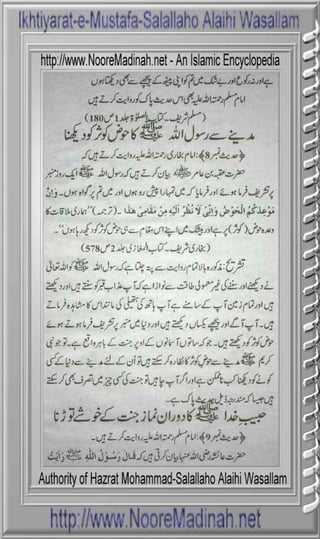 Ikhtiyarat-e-Mustafa-Salallaho Alaihi Wasallam
http://www.NooreMadinah.net - An Islamic Encyclopedia
ہے اور نہ رکوع اور بے شک میں تم کو اپنی پیٹھ کے پیچھے سے بھی دیکھتا ہوں
امام مسلم رحمۃ اللہ علیہ بھی اسی حدیث پاک کو روایت کرتے ہیں
(مسلم شریف۔ کتاب الصلوٰۃ جلد 1 ص 180)
مدینے سے رسول اللہ ﷺ کا حوض کوثر کو دیکھنا
﴿حدیث نمبر 8﴾: امام بخاری رحمۃ اللہ علیہ روایت کرتے ہیں کہ
حضرت عقبہ بن عامر بیان کرتے ہیں کہ رسول اللہ ﷺ ایک روز منبر
پر تشریف فرما ہوئے اور فرمایا کہ میں تمہارا پیش رو ہوں اور میں تم پر گواہ ہوں۔ وَاِنَّ
مَوْعِدَكُمُ الْحَوْضُ وَاِنِّیْ لَاَ نْظُرُ اِلَیْهِ مِنْ مَقَامِیْ هٰذَا ۔ (ترجمہ) ”ہماری ملاقات کا
وعدہ حوض (کوثر) پر ہے اور بیشک میں اپنے اس مقام سے ہی حوض کوثر کو دیکھ رہا ہوں“۔
(بخاری شریف۔ کتاب المغازی جلد 2 ص 578)
تشریح: مذکورہ بالا تمام روایت سے پتہ چلتا ہے کہ رسول اللہ ﷺ کو اللہ تعالیٰ
نے دیکھنے اور سننے کی غیر معمولی طاقت سے نوازا ہے کہ آپ عذاب قبر کو سنتے ہیں اور دیکھتے
ہیں اور تمام زمین آپ کے سامنے ہے آپ ہاتھ کی ہتھیلی کی مانند اس کا مشاہدہ فرماتے
ہیں۔ آپ آگے اور پیچھے یکساں دیکھتے ہیں اور دنیا میں منبر پر تشریف فرما ہوتے ہوئے
حوض کوثر کو دیکھتے ہیں۔ جو کہ ساتوں آسمانوں کے اوپر جنت کے باہر واقع ہے۔ تو جو نبی
کریم ﷺ مدینے سے حوض کوثر کا نظارہ کر سکتے ہیں تو اُن کے لئے مدینے سے دنیا کے کسی
کونے کو دیکھنا کب ناممکن ہے اور اگر آپ چاہیں تو جنت کی کسی چیز میں تصرف بھی کر سکتے
ہیں جیسا کہ مندرجہ ذیل حدیث پاک ہے۔
حبیبِ خدا ﷺ کا دورانِ نماز جنت کے خوشے توڑنا
﴿حدیث نمبر 9﴾: امام مسلم رحمۃ اللہ علیہ روایت کرتے ہیں۔
حضرت عائشہ رضی اللہ عنہا بیان کرتی ہیں کہ قَالَ رَسُوْلُ اللّٰهِ ﷺ رَاَیْتُ
Authority of Hazrat Mohammad-Salallaho Alaihi Wasallam
http://www.NooreMadinah.net